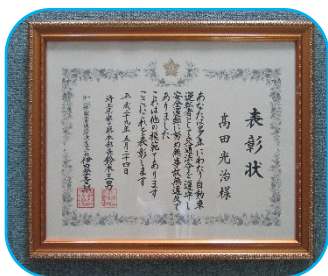 表彰状
髙田光治様
あなたは多年にわたり自動車
運転者として交通法令を遵守し
安全運転に努め無事故無違反で
ありました
これは他の模範であります
ここにこれを表彰します
平成二十九年五月二十四日
埼玉県警察本部長 鈴木三男